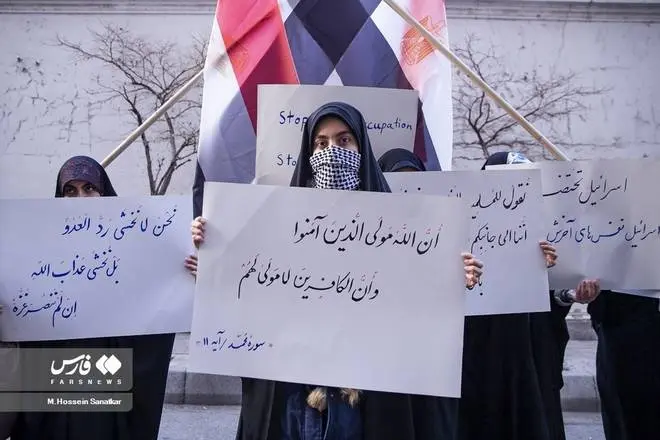 Stop occupation
Stop
نحن لا نخشی ردّ العدوّ
بل نخشی عذاب الله
إن لم ننصر غزة
أنّ الله مولی الّذین آمنوا
وأنّ الکافرین لا مولی لهم
«سوره محمد / آیه ۱۱»
نقول
أننا الی جانبکم
اسرائیل تحتضر
اسرائیل نفس های آخرش
فارس
FARS NEWS
M.Hossein Sanatkar